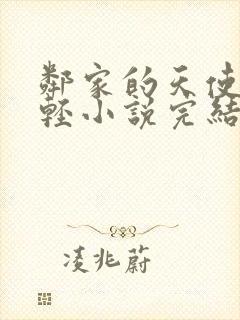 鄰家的天使
輕小說完結
凌兆蔚